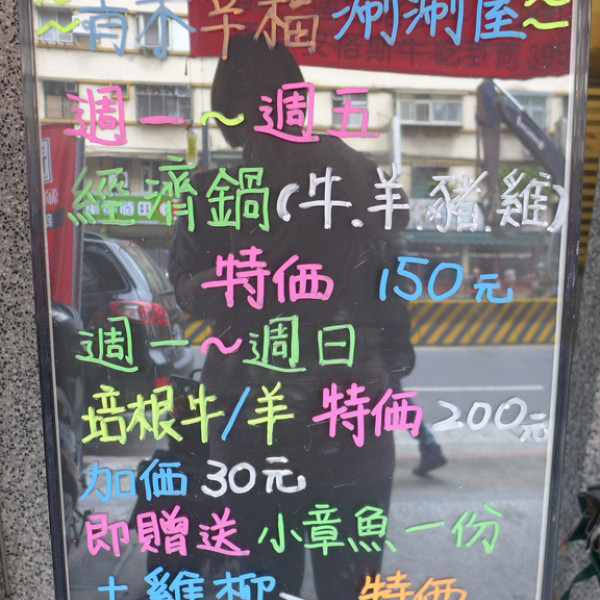 ~有木幸福涮涮屋~
週一~週五
經濟鍋(牛.羊.豬.雞)
特価 150元
週一~週日
培根牛/羊 特価200元
加価30元
即贈送小章魚一份
土雞柳 特価